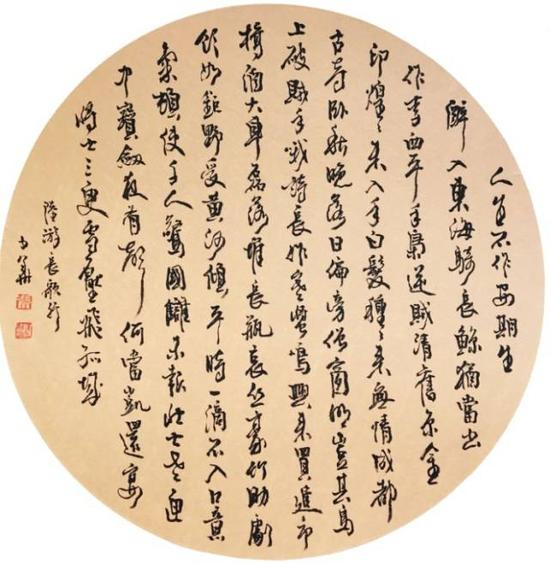 人生不作安期生
醉入東海騎長鯨猶當出
作李西平手梟逆賊清舊京金
印煌々未入手白髮種々來無情成都
古寺卧秋晚落日偏傍僧窗明豈其馬
上破賊手哦詩長作寒螿鳴興來買盡市
橋酒大車磊落堆長瓶哀絲豪竹助劇
飲如鉅野受黄河傾平時一滴不入口意
氣頓使千人驚國讎未報壯士老匣
中寶劍夜有聲何當凱還宴
將士三更雪壓飛狐城
陸游長歌行